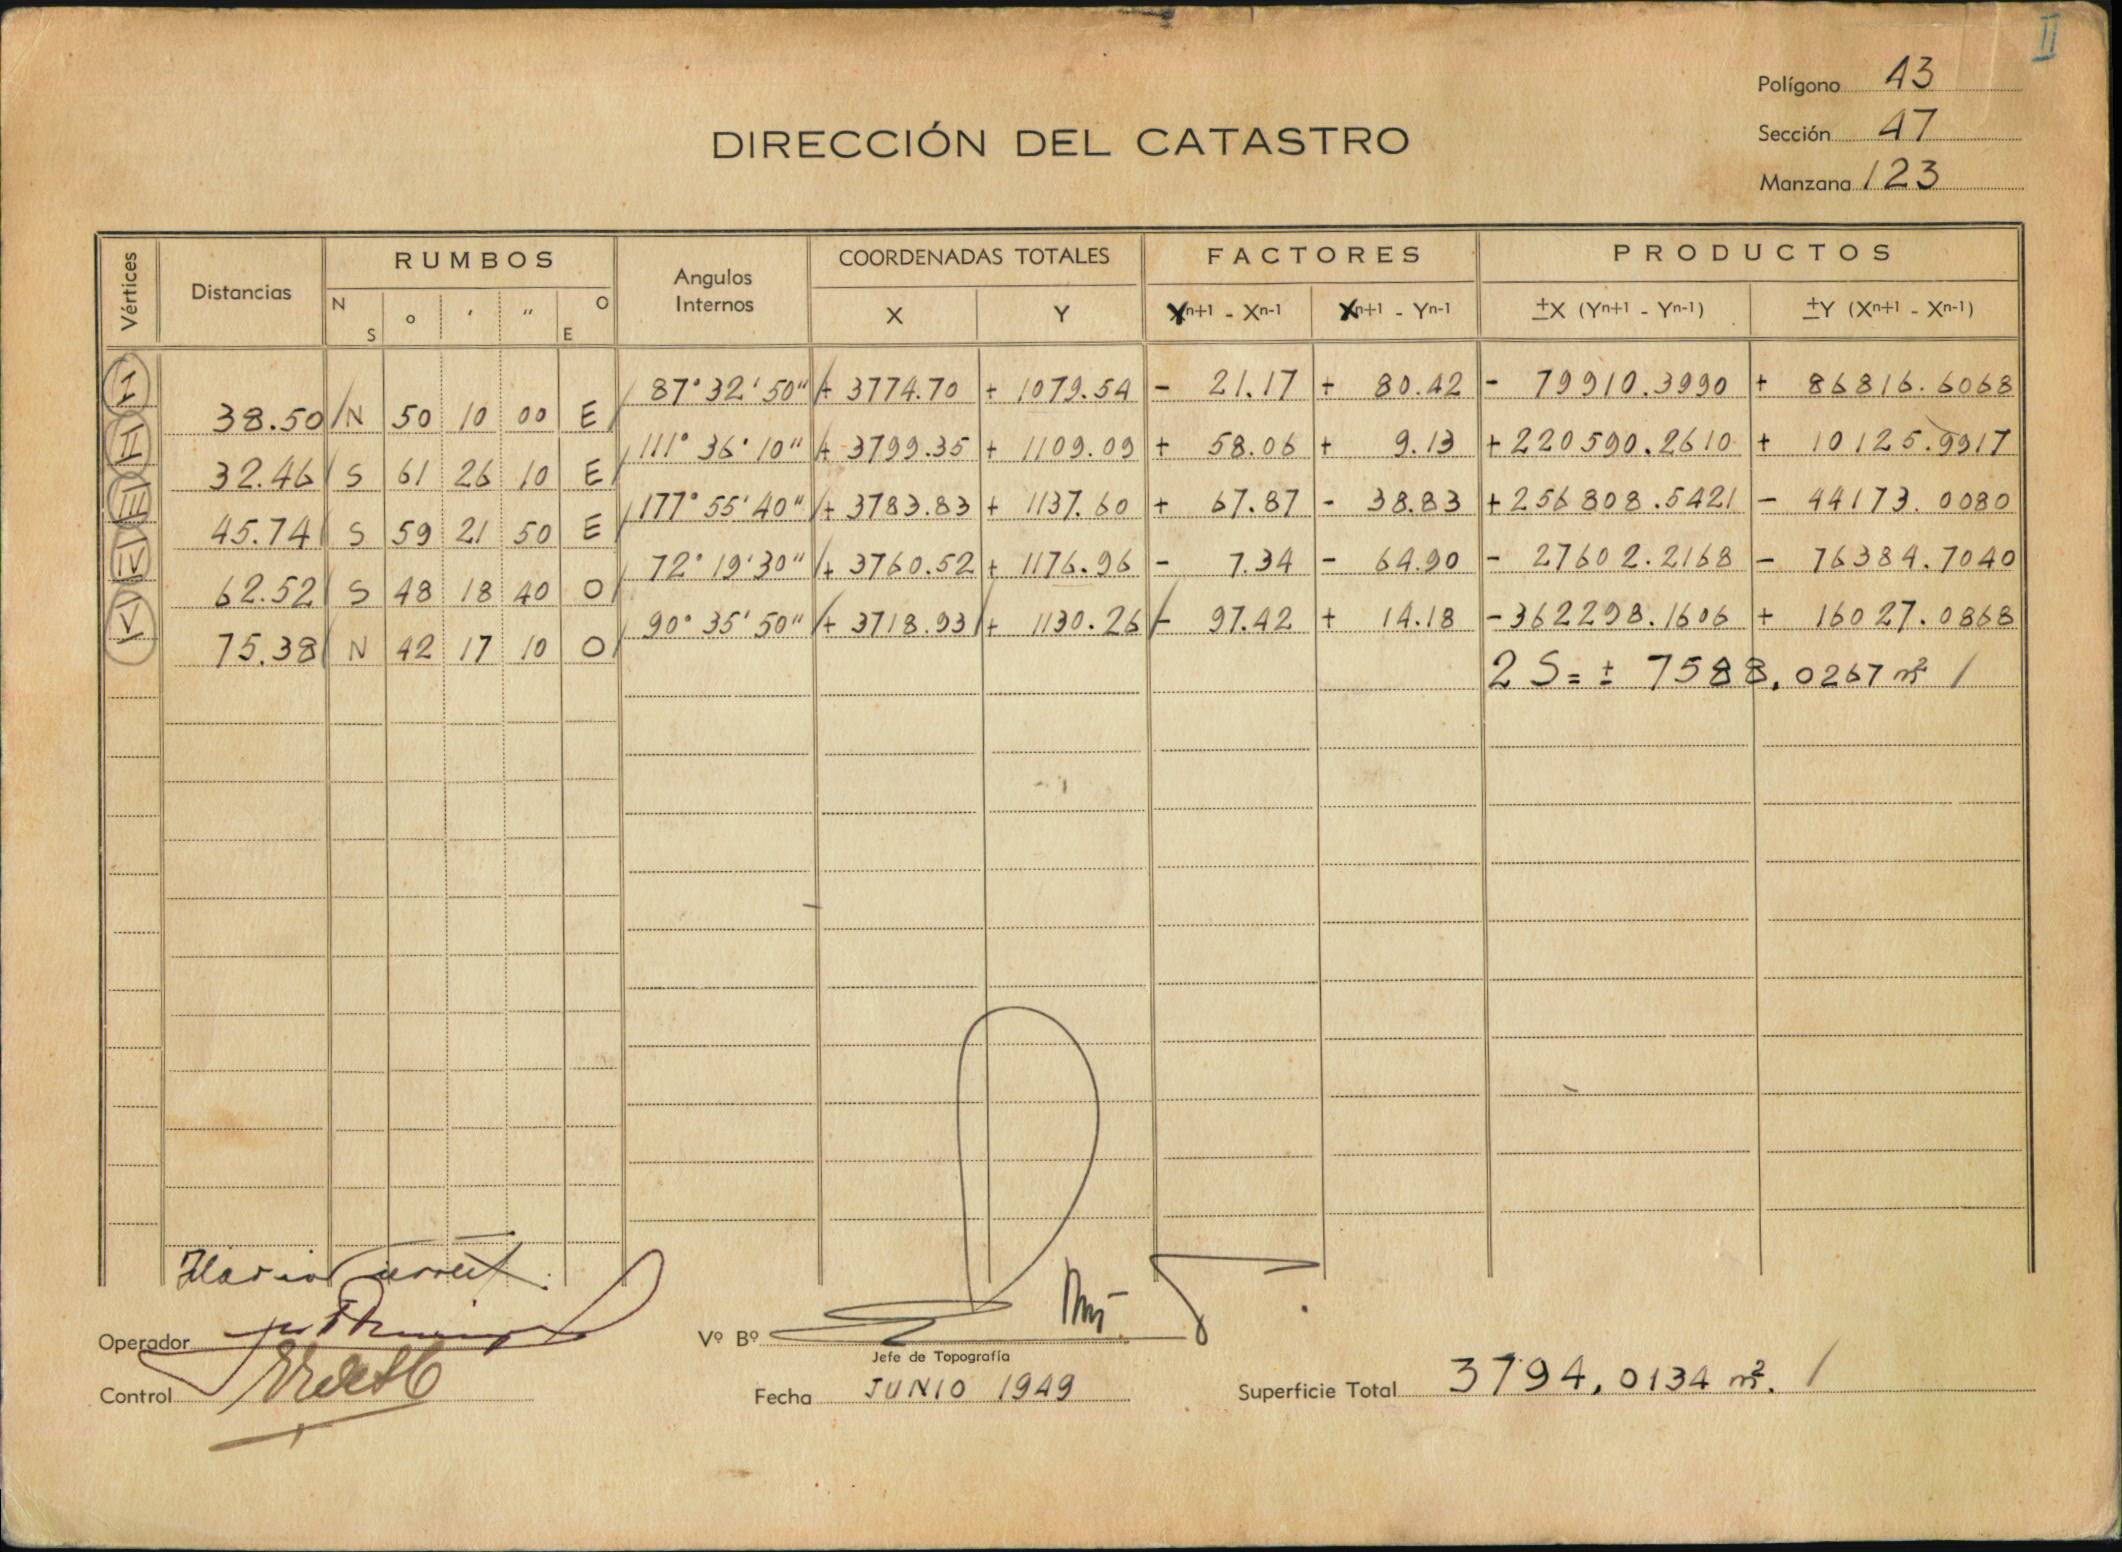 II
Polígono 43
Sección 47
Manzana 123
DIRECCIÓN DEL CATASTRO
Vértices Distancias RUMBOS Angulos Internos COORDENADAS TOTALES FACTORES PRODUCTOS
N S ° ' " O E X Y Yn+1 - Xn-1 Xn+1 - Yn-1 ±X (Yn+1 - Yn-1) ±Y (Xn+1 - Xn-1)
I 87° 32' 50" + 3774.70 + 1079.54 - 21.17 + 80.42 - 79910.3990 + 86816.6068
38.50 N 50 10 00 E
II 111° 36' 10" + 3799.35 + 1109.09 + 58.06 + 9.13 + 220590.2610 + 10125.9917
32.46 S 61 26 10 E
III 177° 55' 40" + 3783.83 + 1137.60 + 67.87 - 38.83 + 256808.5421 - 44173.0080
45.74 S 59 21 50 E
IV 72° 19' 30" + 3760.52 + 1176.96 - 7.34 - 64.90 - 27602.2168 - 76384.7040
62.52 S 48 18 40 O
V 90° 35' 50" + 3718.93 + 1130.26 - 97.42 + 14.18 - 362298.1606 + 16027.0868
75.38 N 42 17 10 O
2 S = ± 7588,0267 m²
Operador
Vº Bº
Jefe de Topografía
Control
Fecha JUNIO 1949
Superficie Total 3794,0134 m².